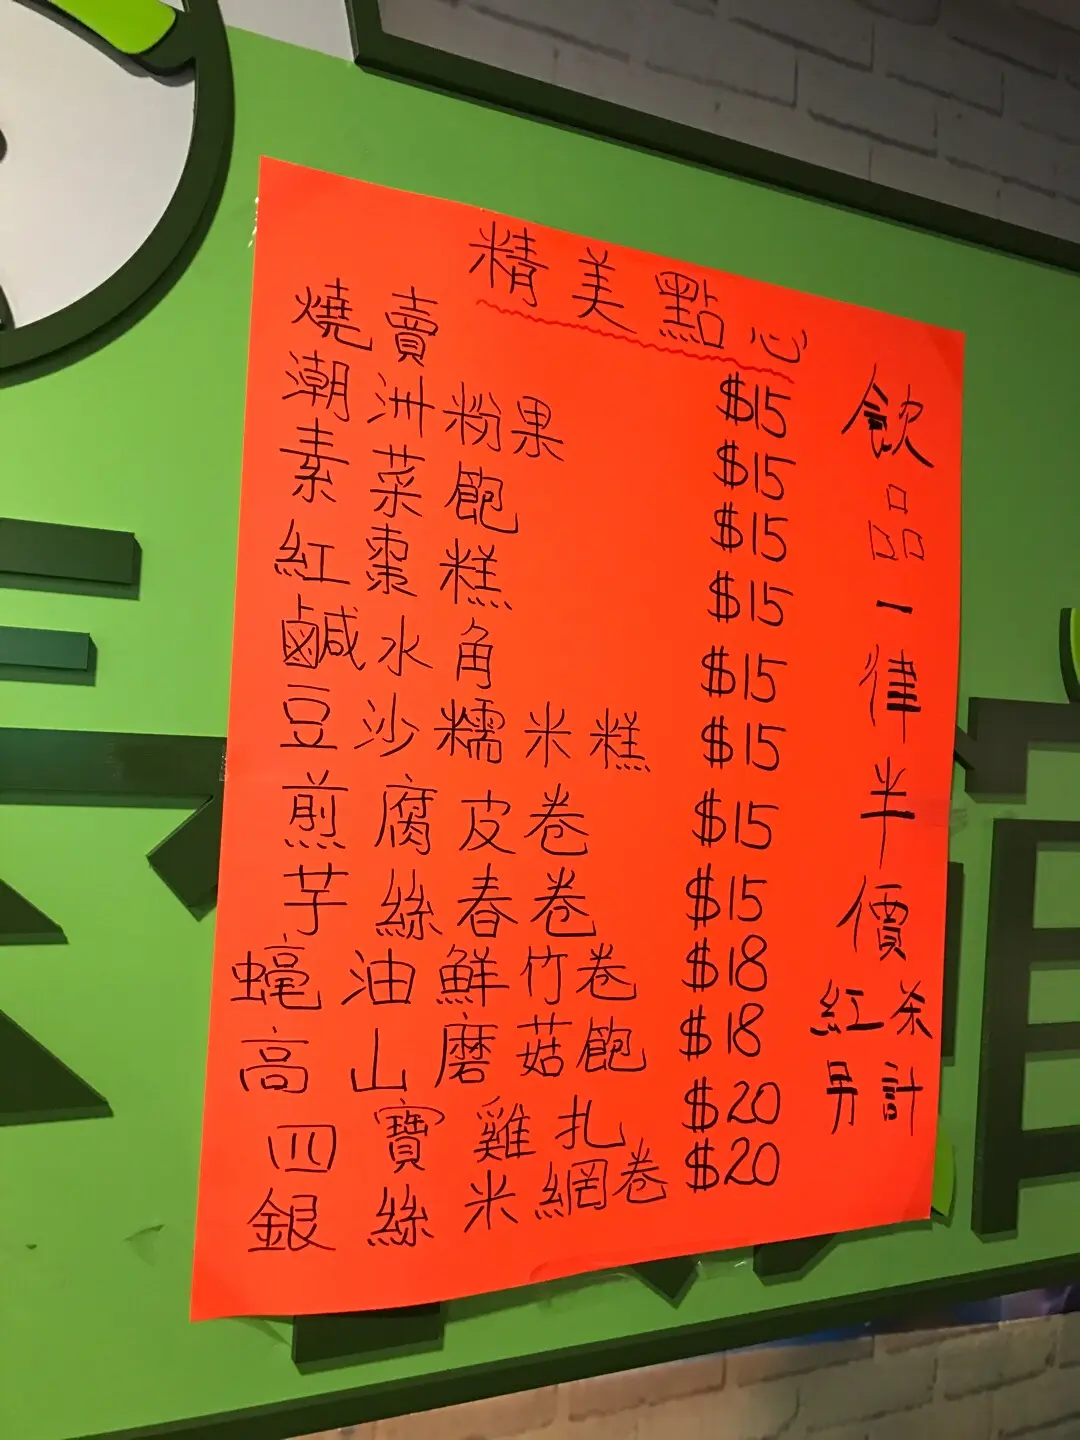 精美點心
燒賣 $15
潮洲粉果 $15
素菜飽 $15
紅棗糕 $15
鹹水角 $15
豆沙糯米糕 $15
煎腐皮卷 $15
芋絲春卷 $15
蠔油鮮竹卷 $18
高山磨菇飽 $18
四寶雞扎 $20
銀絲米網卷 $20
飲品一律半價
紅茶
另計